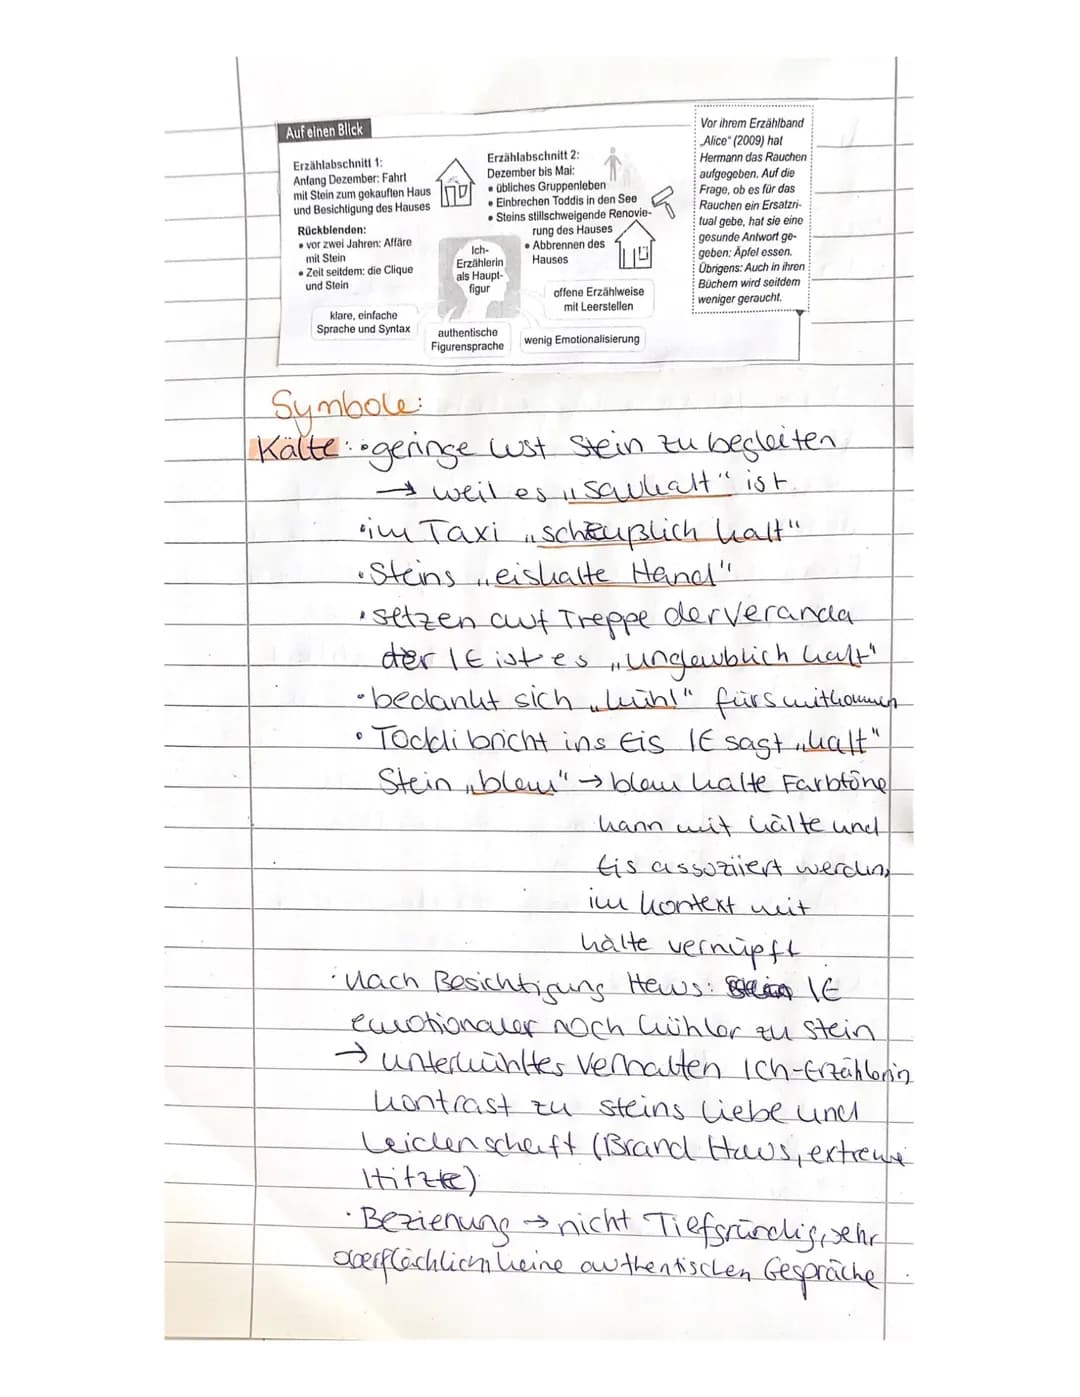 Auf einen Blick
Erzählabschnitt 1:
Anfang Dezember: Fahrt
mit Stein zum gekauften Haus
und Besichtigung des Hauses
Rückblenden:
• vor zwei Jahren: Affäre
mit Stein
• Zeit seitdem: die Clique
und Stein
Erzählabschnitt 2:
Dezember bis Mai:
• übliches Gruppenleben
• Einbrechen Toddis in den See
• Steins stillschweigende Renovie-
rung des Hauses
• Abbrennen des
Hauses
Ich-
Erzählerin
als Haupt-
figur
klare, einfache
Sprache und Syntax
authentische
Figurensprache
offene Erzählweise
mit Leerstellen
wenig Emotionalisierung
Vor ihrem Erzählband
„Alice" (2009) hat
Hermann das Rauchen
aufgegeben. Auf die
Frage, ob es für das
Rauchen ein Ersatzri-
tual gebe, hat sie eine
gesunde Antwort ge-
geben: Äpfel essen.
Übrigens: Auch in ihren
Büchern wird seitdem
weniger geraucht.
Symbole:
Kälte: • geringe Lust Stein zu begleiten
→ weil es „saukalt" ist.
• im Taxi „scheußlich kalt"
• Steins „eiskalte Hand"
• setzen auf Treppe der Veranda
der IE ist es „unglaublich kalt"
• bedankt sich „kühl" fürs mitkommen
• Toddi bricht ins Eis IE sagt „kalt"
Stein „blau" → blau kalte Farbtöne
kann mit kälte und
Eis assoziiert werden,
im kontext mit
kälte vernüpft
• Nach Besichtigung Haus: IE
emotionaler noch kühler zu Stein
→ unterkühltes Verhalten Ich-Erzählerin
kontrast zu steins Liebe und
Leidenschaft (Brand Haus, extreme
Hitze)
• Beziehung → nicht Tiefgründig, sehr
oberflächlich, keine authentischen Gespräche